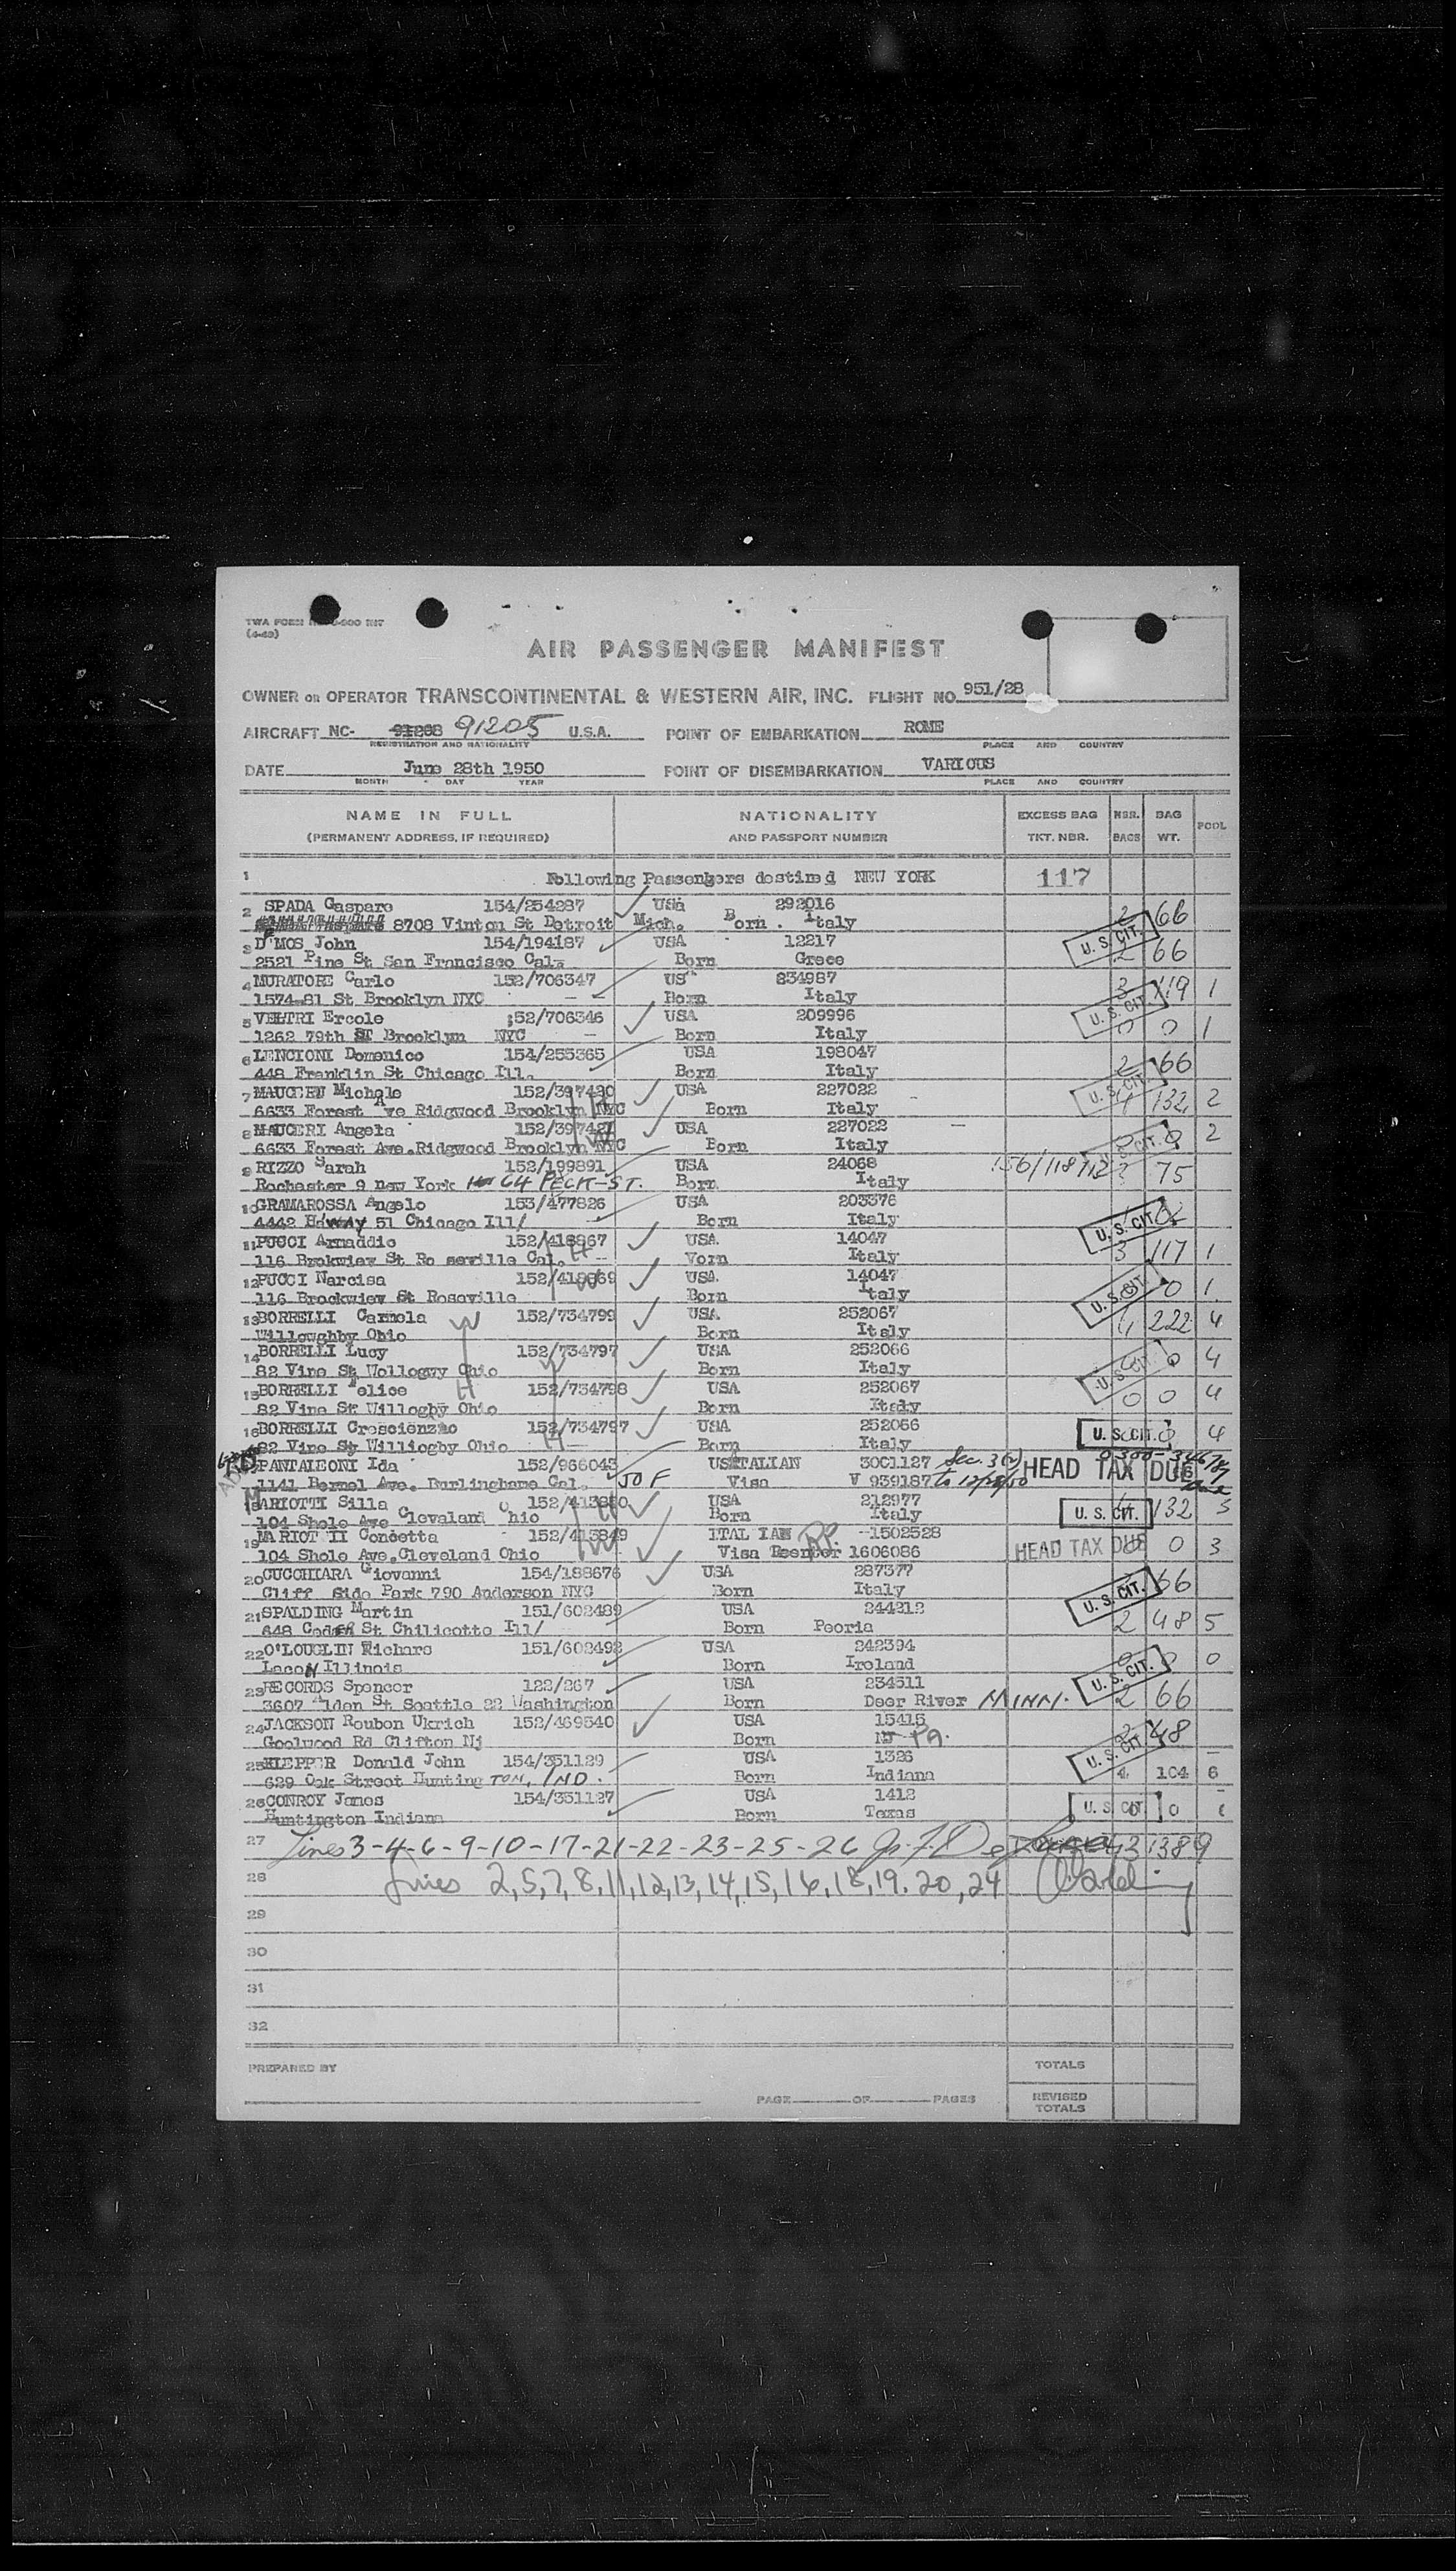 TWA FORM
(4-49)
AIR PASSENGER MANIFEST
OWNER OR OPERATOR TRANSCONTINENTAL & WESTERN AIR, INC. FLIGHT NO. 951/28
AIRCRAFT NC- 91208 91205 U.S.A. POINT OF EMBARKATION ROME
REGISTRATION AND NATIONALITY PLACE AND COUNTRY
DATE June 28th 1950 POINT OF DISEMBARKATION VARIOUS
MONTH DAY YEAR PLACE AND COUNTRY
NAME IN FULL NATIONALITY EXCESS BAG NBR. BAG POOL
(PERMANENT ADDRESS, IF REQUIRED) AND PASSPORT NUMBER TKT. NBR. BAGS WT.
1 Following Passengers destined NEW YORK 117
2 SPADA Gaspare 154/254287 USA 292016 2 66
8708 Vinton St Detroit Mich. Born . Italy
3 D'MOS John 154/194187 USA 12217 U. S. CIT. 2 66
2521 Pine St San Francisco Cal- Born Grece
4 MURATORE Carlo 152/706347 US 234987 3 119 1
1574-81 St Brooklyn NYC - Born Italy U. S. CIT.
5 VELTRI Ercole ;52/706346 USA 209996 0 0 1
1262 79th ST Brooklyn NYC - Born Italy
6 LENCIONI Domenico 154/255365 USA 198047 2 66
448 Franklin St Chicago Ill. Born Italy U. S. CIT.
7 MAUCERI Michele 152/397420 H USA 227022 4 132 2
6633 Forest Ave Ridgwood Brooklyn NYC Born Italy
8 MAUCERI Angela 152/397421 W USA 227022 - 0 0 2
6633 Forest Ave.Ridgwood Brooklyn NYC Born Italy U. S. CIT.
9 RIZZO Sarah 152/199891 USA 24068 156/118712 3 75
Rochester 9 New York 64 PECK-ST. Born Italy
10 GRAMAROSSA Angelo 153/477826 USA 203376
4442 51 Chicago Ill/ Born Italy U. S. CIT.
11 PUCCI Armaddio 152/418867 H USA. 14047 3 117 1
116 Brokwiew St Ro seville Cal. Vorn Italy
12 PUCCI Narcisa 152/418869 W USA. 14047 0 0 1
116 Brockwiew St Roseville Born Italy U. S. CIT.
13 BORRELLI Carmela W 152/734799 USA 252067 4 222 4
Willoughby Ohio Born Italy
14 BORRELLI Lucy 152/734797 W USA 252066 0 0 4
82 Vine St Wollogwy Ohio Born Italy U. S. CIT.
15 BORRELLI Felice H 152/734798 USA 252067 0 0 4
82 Vine St Willogby Ohio Born Italy
16 BORRELLI Crescienzao 152/734797 H USA 252066 U. S. CIT. 0 4
82 Vine St Williogby Ohio Born Italy
17 PANTALEONI Ida 152/966043 ITALIAN 3001127 Sec. 3(2) HEAD TAX DUE
1141 Bernel Ave. Burlinghame Cal. 50 F Visa V 939187 to 12/28/50
18 MARIOTTI Silla 152/413850 H USA 212977 U. S. CIT. 4 132 3
104 Shole Ave Clevaland Ohio Born Italy
19 MARIOTTI Concetta 152/413849 W ITALIAN RP. -1502528 0 3
104 Shole Ave.Cleveland Ohio Visa Reenter 1606086 HEAD TAX DUE
20 CUCCHIARA Giovanni 154/188676 USA 287377 66
Cliff Side Park 790 Anderson NYC Born Italy U. S. CIT.
21 SPALDING Martin 151/602489 USA 244212 2 48 5
648 Cedar St Chilicotte Ill/ Born Peoria
22 O'LOUGLIN Richars 151/602492 USA 242394 0 0 0
Lacon Illinois Born Ireland U. S. CIT.
23 RECORDS Spencer 122/267 USA 234511 2 66
3607 Alden St Seattle 22 Washington Born Deer River MINN.
24 JACKSON Roubon Ukrich 152/469540 USA 15415 2 48
Goolwood Rd Clifton Nj Born NJ PA. U. S. CIT.
25 KLEPPER Donald John 154/351129 USA 1326 -
629 Oak Street Huntington, IND. Born Indiana 4 104 6
26 CONROY James 154/351127 USA 1412 U. S. CIT. 0 0 6
Huntington Indiana Born Texas
27 Lines 3-4-6-9-10-17-21-22-23-25-26 43 1389
28 Lines 2,5,7,8,11,12,13,14,15,16,18,19,20,24
29
30
31
32
PREPARED BY TOTALS
PAGE OF PAGES REVISED
TOTALS